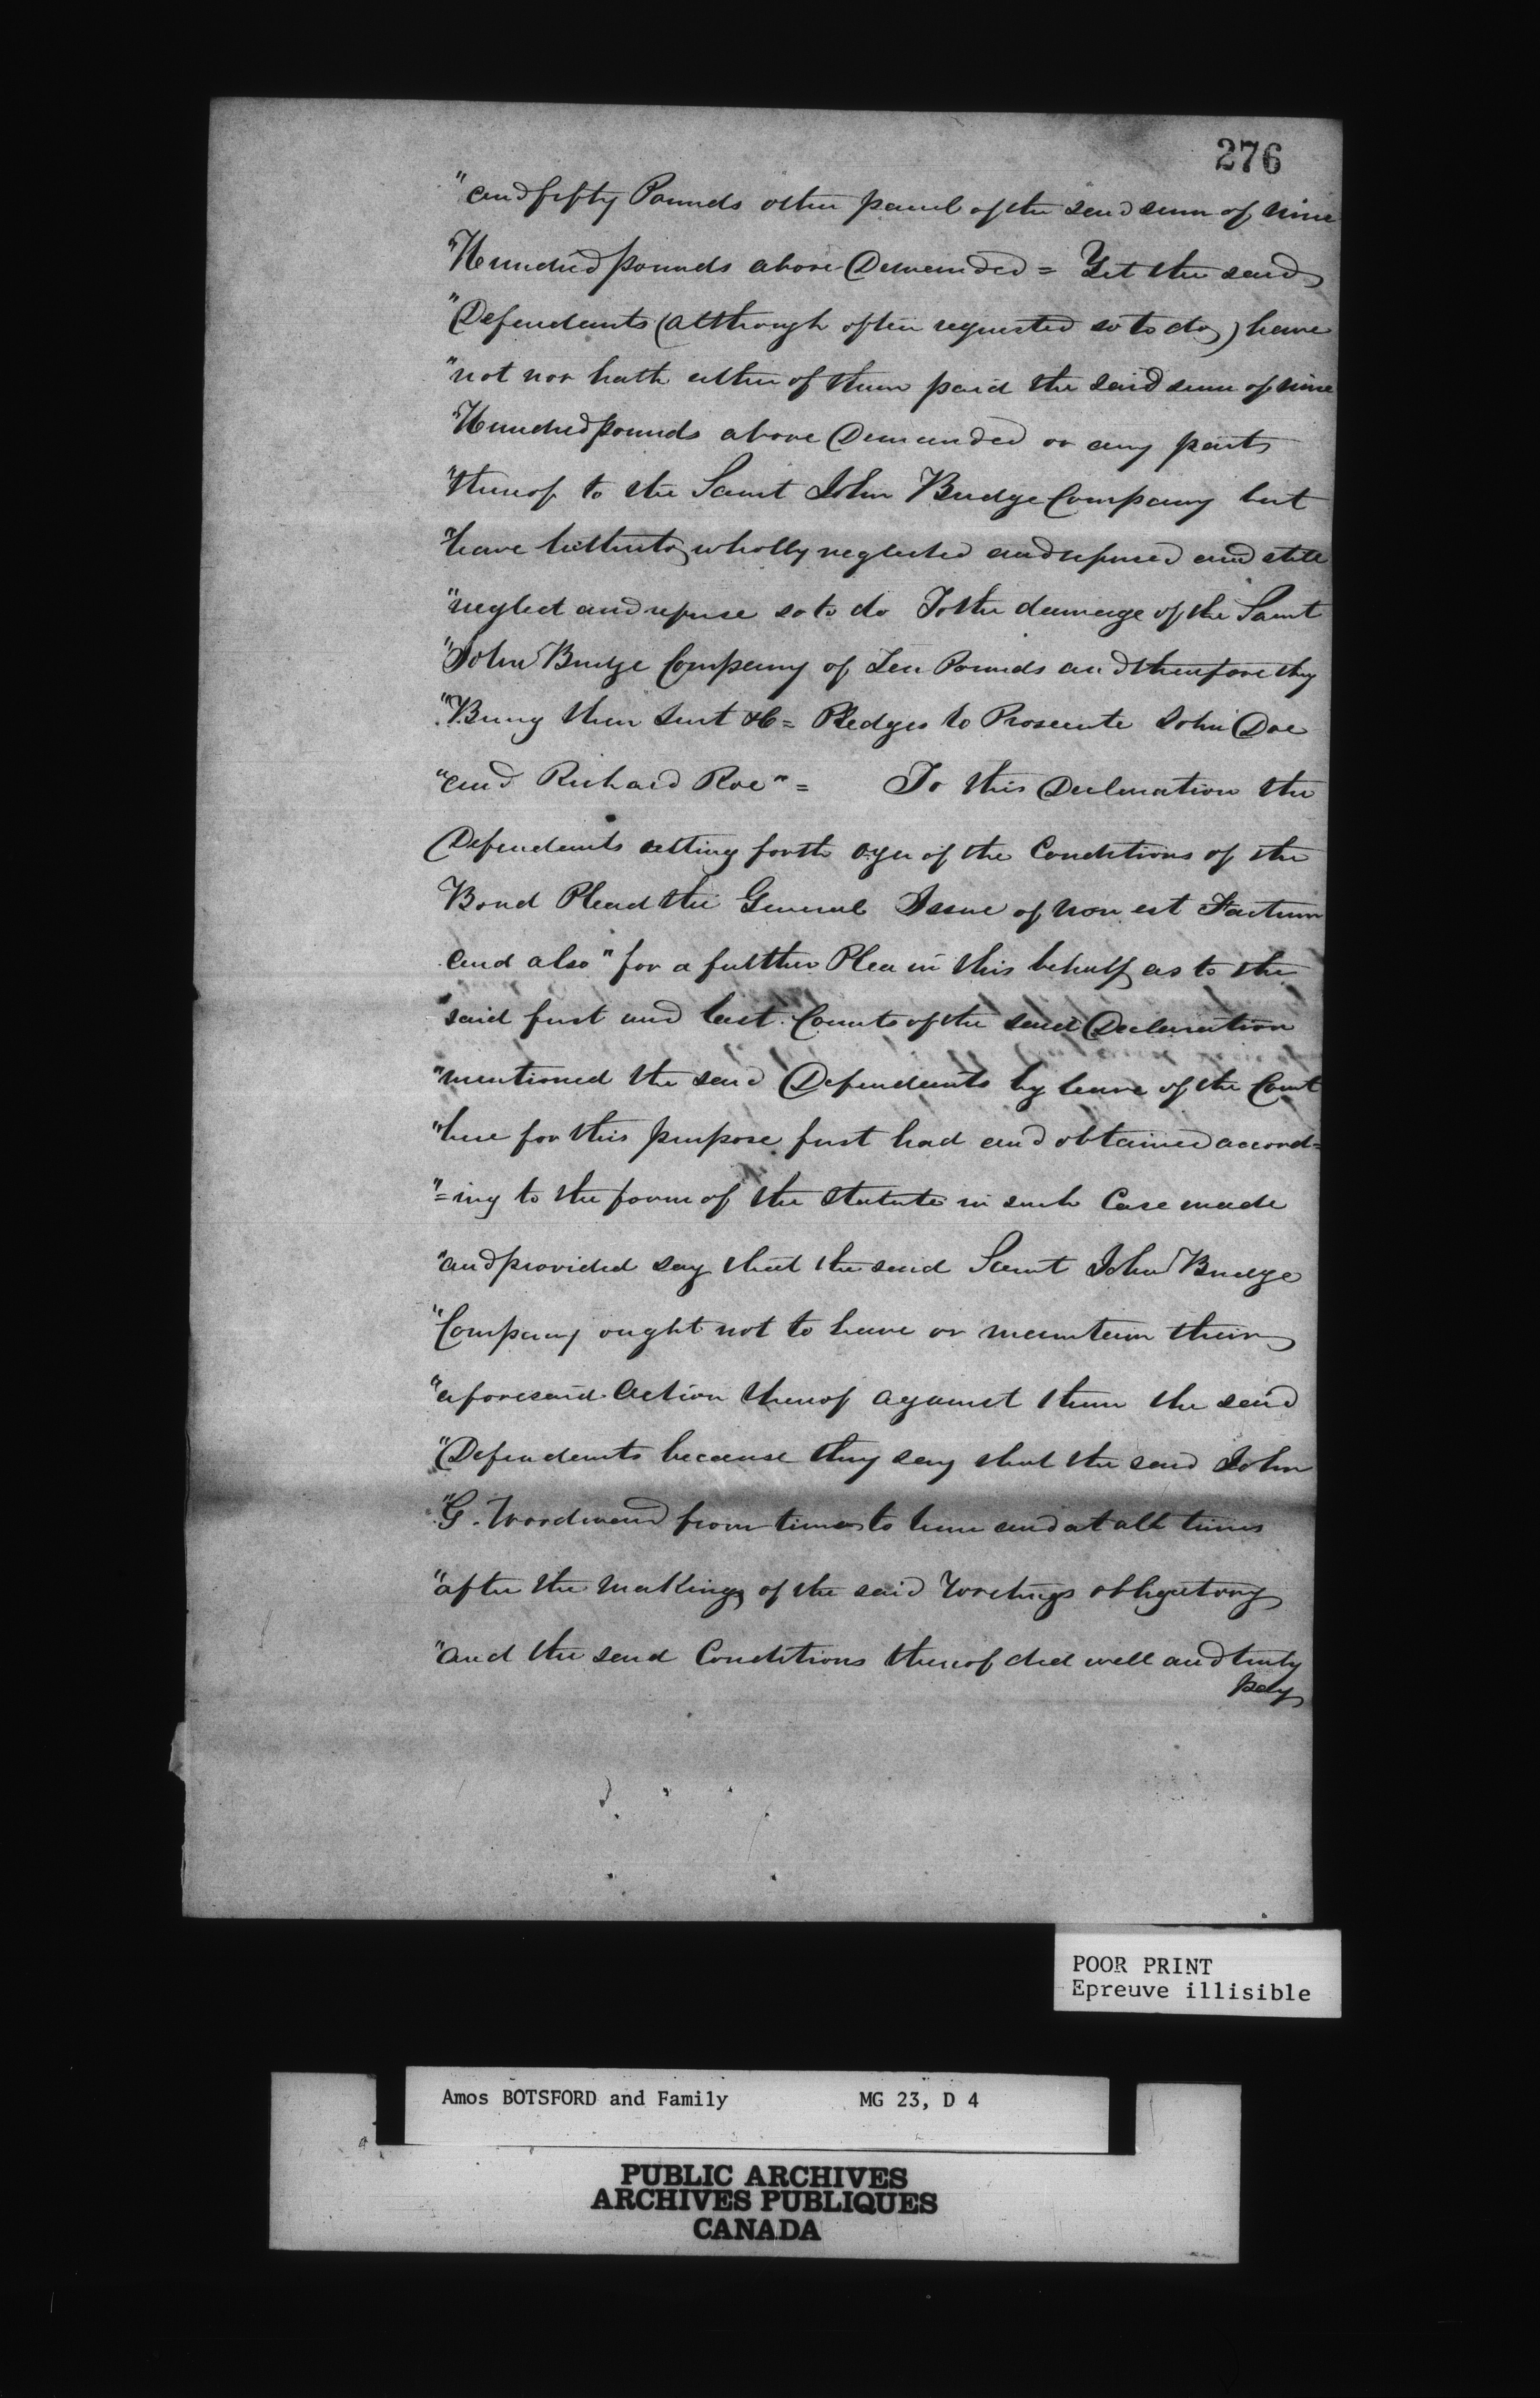 276
"and fifty Pounds other parcel of the said sum of nine
"Hundred pounds above Demanded = Yet the said
"Defendants (although often requested so to do) have
"not nor hath either of them paid the said sum of nine
"Hundred pounds above Demanded or any part
"thereof to the Saint John Bridge Company but
"have hitherto wholly neglected and refused and still
"neglect and refuse so to do To the damage of the Saint
"John Bridge Company of Ten Pounds and therefore they
"Bring their Suit &c = Pledges to Prosecute John Doe
"and Richard Roe" = To this Declaration the
Defendants setting forth oyer of the Conditions of the
Bond Plead the General Issue of non est Factum
and also "for a further Plea in this behalf as to the
"said first and last Counts of the said Declaration
"mentioned the said Defendants by leave of the Court
"here for this purpose first had and obtained accord=
"=ing to the form of the Statute in such Case made
"and provided say that the said Saint John Bridge
"Company ought not to have or maintain their
"aforesaid Action thereof against them the said
"Defendants because they say that the said John
"G. Woodward from time to time and at all times
"after the making of the said Writings obligatory
"and the said Conditions thereof did well and truly
pay
POOR PRINT
Epreuve illisible
Amos BOTSFORD and Family MG 23, D 4
PUBLIC ARCHIVES
ARCHIVES PUBLIQUES
CANADA